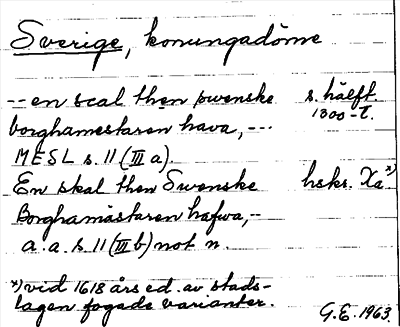 Sverige, konungadöme
-- en scal then swenske s. hälft
borghamestaren hava, --- 1300-t.
MESL s. 11 (III a).
En skal then Swenske hskr. Xa *)
Borghamästaren hafwa, --
a. a. s. 11 (III b) not n.
*) vid 1618 års ed. av stads-
lagen fogade varianter.
G.E. 1963.